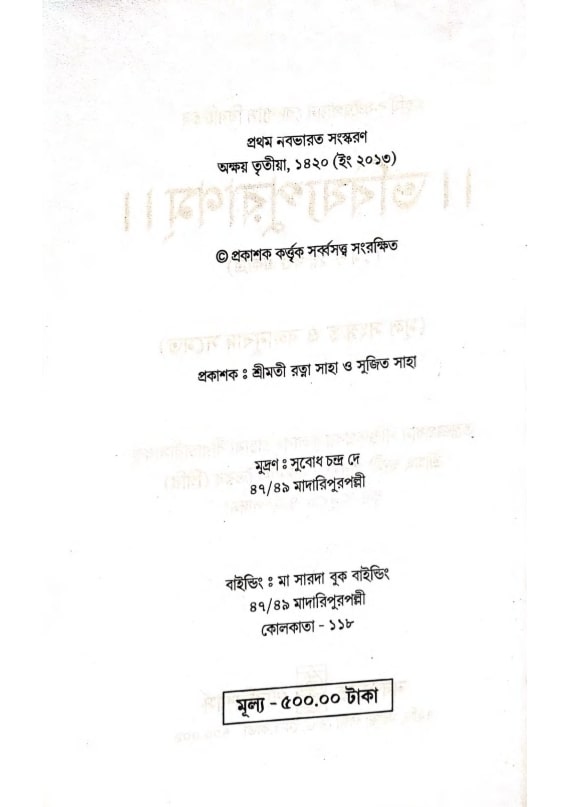 প্রথম নবভারত সংস্করণ
অক্ষয় তৃতীয়া, ১৪২০ (ইং ২০১৩)
© প্রকাশক কর্ত্তৃক সর্ব্বসত্ত্ব সংরক্ষিত
প্রকাশক : শ্রীমতী রত্না সাহা ও সুজিত সাহা
মুদ্রণ : সুবোধ চন্দ্র দে
৪৭/৪৯ মাদারিপুরপল্লী
বাইন্ডিং : মা সারদা বুক বাইন্ডিং
৪৭/৪৯ মাদারিপুরপল্লী
কোলকাতা - ১১৮
মূল্য - ৫০০.০০ টাকা